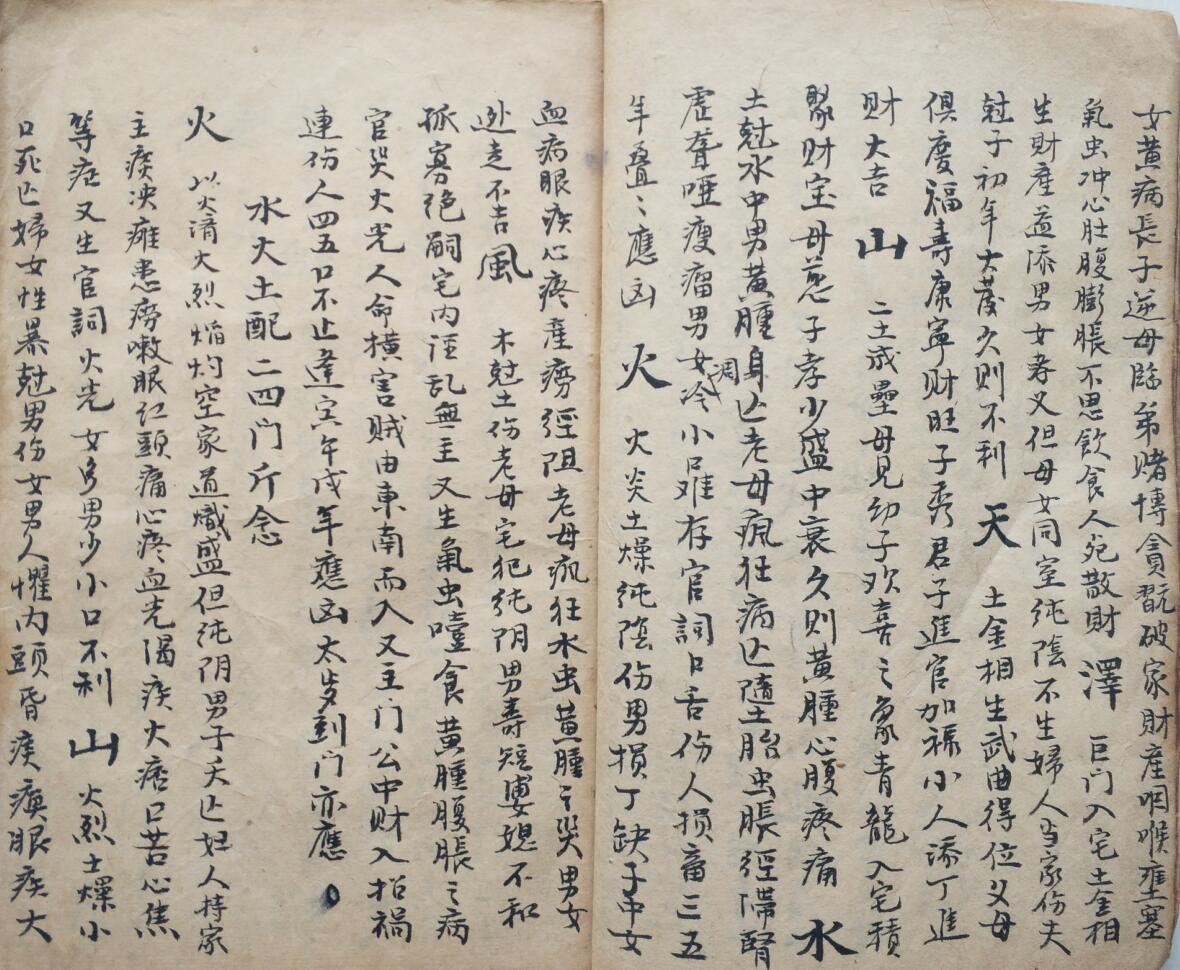 女黄病長子逆母臨弟賭博貪翫破家財産咽喉壅塞
氣虫冲心肚腹膨脹不思飲食人宛散財 澤 巨門入宅土金相
生財産益添男女孝义但母女同室纯陰不生婦人当家伤夫
尅子初年大发久则不利 天 土金相生武曲得位父母
俱慶福寿康寧财旺子秀君子進官加禄小人添丁進
财大吉 山 二土成壘母見幼子欢喜之象青龍入宅積
聚财宝母慈子孝少盛中衰久则黄腫心腹疼痛 水
土尅水中男黄腫身亡老母疯狂病亡隨土胎虫脹經滞腎
虚聋哑瘦瘤男女冷凋小口难存官詞口舌伤人損畜三五
年叠々應凶 火 火炎土燥纯陰伤男損丁缺子中女
血病眼疾心疼産癆經阻老母疯狂水虫黄腫之災男女
迯走不吉 風 木尅土伤老母宅犯纯阴男寿短婆媳不和
孤寡绝嗣宅内淫乱無主又生氣虫噎食黄腫腹脹之病
官災火光人命横害贼由東南而入又主门公中财入招禍
連伤人四五口不止逢寅午戌年應凶太岁到门亦應
水火土配二四门斤念
火 以火濟火烈焔灼空家道熾盛但纯阴男子夭亡妇人持家
主痰泱瘫患癆嗽眼红頭痛心疼血光陽疾大痞口苦心焦
等症又生官詞火光女多男少小口不利 山 火烈土燥小
口死亡婦女性暴尅男伤女男人懼内頭昏痰瘓眼疾大